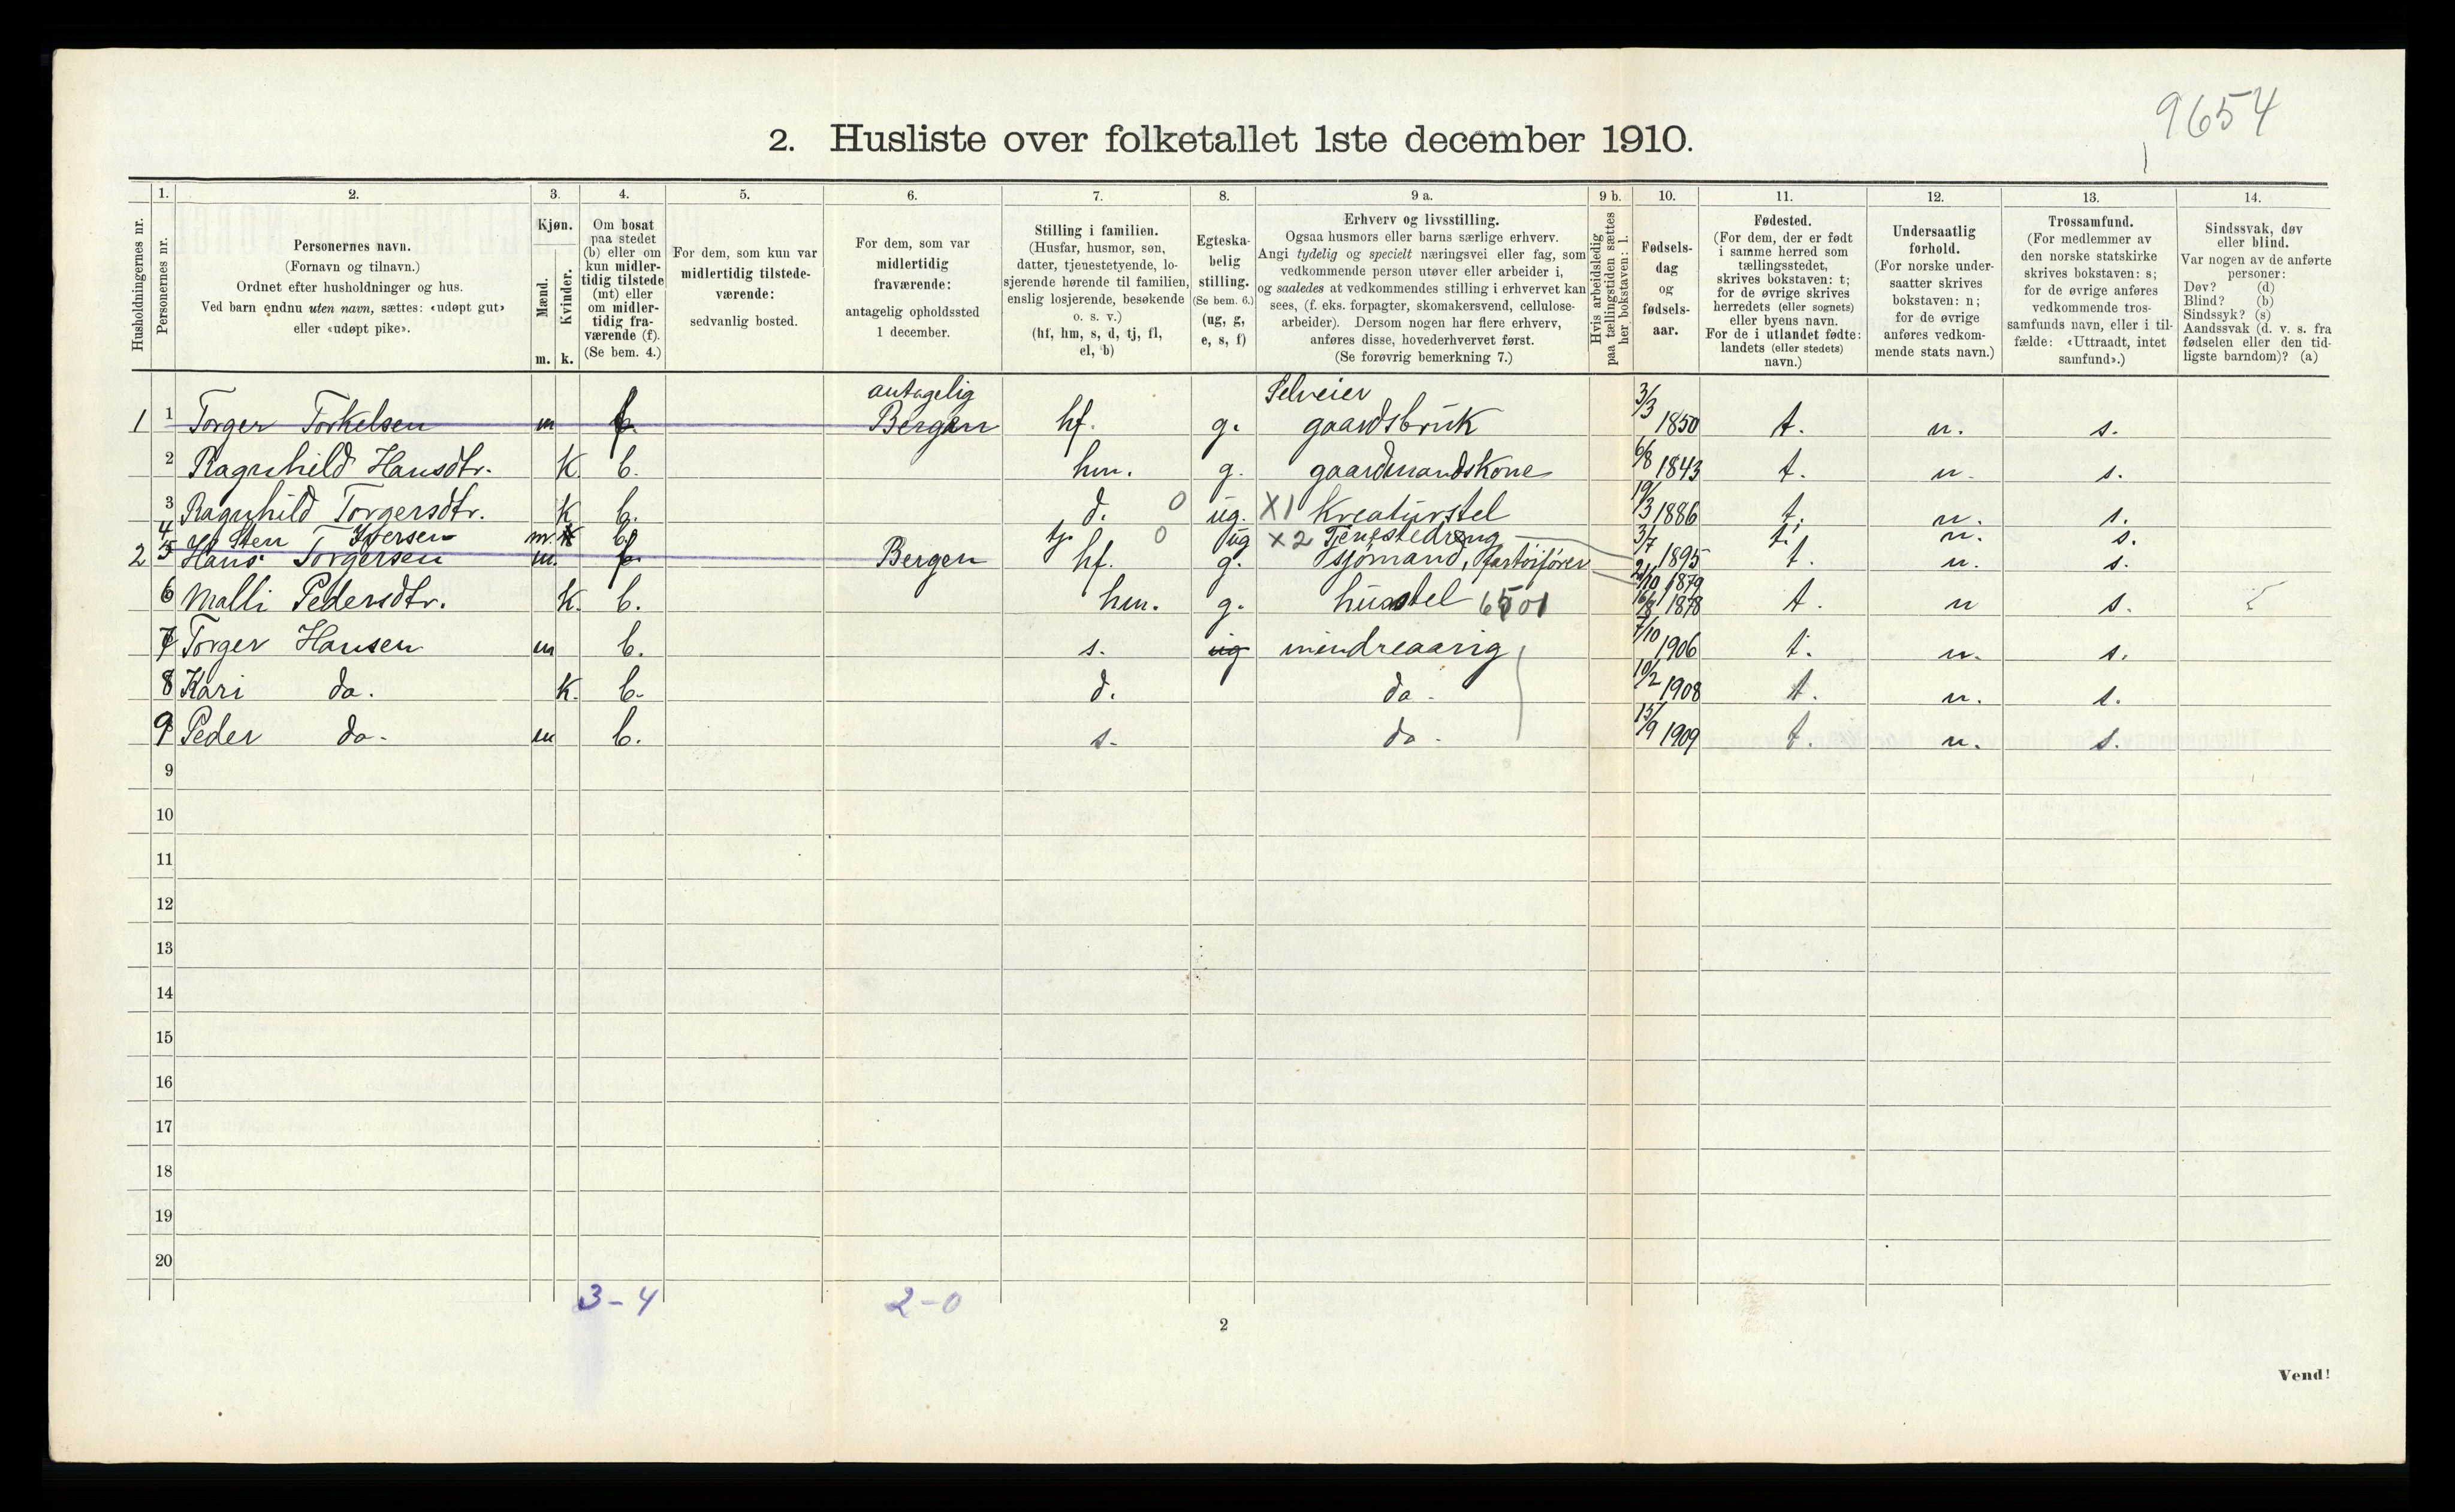 9654
2. Husliste over folketallet 1ste december 1910.
Husholdningernes nr.
1.
Personernes nr.
2.
Personernes navn.
(Fornavn og tilnavn.)
Ordnet efter husholdninger og hus.
Ved barn endnu uten navn, sættes: «udøpt gut»
eller «udøpt pike».
3.
Kjøn.
Mænd.
Kvinder.
m. k.
4.
Om bosat
paa stedet
(b) eller om
kun midler-
tidig tilstede
(mt) eller
om midler-
tidig fra-
værende (f).
(Se bem. 4.)
5.
For dem, som kun var
midlertidig tilstede-
værende:
sedvanlig bosted.
6.
For dem, som var
midlertidig
fraværende:
antagelig opholdssted
1 december.
7.
Stilling i familien.
(Husfar, husmor, søn,
datter, tjenestetyende, lo-
sjerende hørende til familien,
enslig losjerende, besøkende
o. s. v.)
(hf, hm, s, d, tj, fl,
el, b)
8.
Egteska-
belig
stilling.
(Se bem. 6.)
(ug, g,
e, s, f)
9 a.
Erhverv og livsstilling.
Ogsaa husmors eller barns særlige erhverv.
Angi tydelig og specielt næringsvei eller fag, som
vedkommende person utøver eller arbeider i,
og saaledes at vedkommendes stilling i erhvervet kan
sees, (f. eks. forpagter, skomakersvend, cellulose-
arbeider). Dersom nogen har flere erhverv,
anføres disse, hovederhvervet først.
(Se forøvrig bemerkning 7.)
9 b.
Hvis arbeidsledig
paa tællingstiden sættes
her bokstaven: l.
10.
Fødsels-
dag
og
fødsels-
aar.
11.
Fødested.
(For dem, der er født
i samme herred som
tællingsstedet,
skrives bokstaven: t;
for de øvrige skrives
herredets (eller sognets)
eller byens navn.
For de i utlandet fødte:
landets (eller stedets)
navn.)
12.
Undersaatlig
forhold.
(For norske under-
saatter skrives
bokstaven: n;
for de øvrige
anføres vedkom-
mende stats navn.)
13.
Trossamfund.
(For medlemmer av
den norske statskirke
skrives bokstaven: s;
for de øvrige anføres
vedkommende tros-
samfunds navn, eller i til-
fælde: «Uttraadt, intet
samfund».)
14.
Sindssvak, døv
eller blind.
Var nogen av de anførte
personer:
Døv? (d)
Blind? (b)
Sindssyk? (s)
Aandssvak (d. v. s. fra
fødselen eller den tid-
ligste barndom)? (a)
antagelig Selveier
1 1 Torger Torkelsen m f. Bergen hf. g. gaardsbruk 3/3 1850 t. n. s.
2 Ragnhild Hansdtr. K. b. hm. g. gaardmandskone 6/8 1843 t. n. s.
3 Ragnhild Torgersdtr. K b. d. 0 ug. X1 Kreaturstel 19/3 1886 t. n. s.
4 Sten Iversen m. b. tj. 0 ug X2 Tjenestedreng 3/7 1895 t. n. s.
2 5 Hans Torgersen m. f. Bergen hf. g. sjømand, fartøifører 21/10 1879 t. n. s.
6 Malli Pedersdtr. K. b. hm. g. husstel 6501 16/8 1878 t. n s.
7 Torger Hansen m b. s. ug mindreaarig 7/10 1906 t. n. s.
8 Kari do. K. b. d. do. 10/2 1908 t. n. s.
9 Peder do. m b. s. do. 15/9 1909 t. n. s.
9
10
11
12
13
14
15
16
17
18
19
20
3-4 2-0
2
Vend!